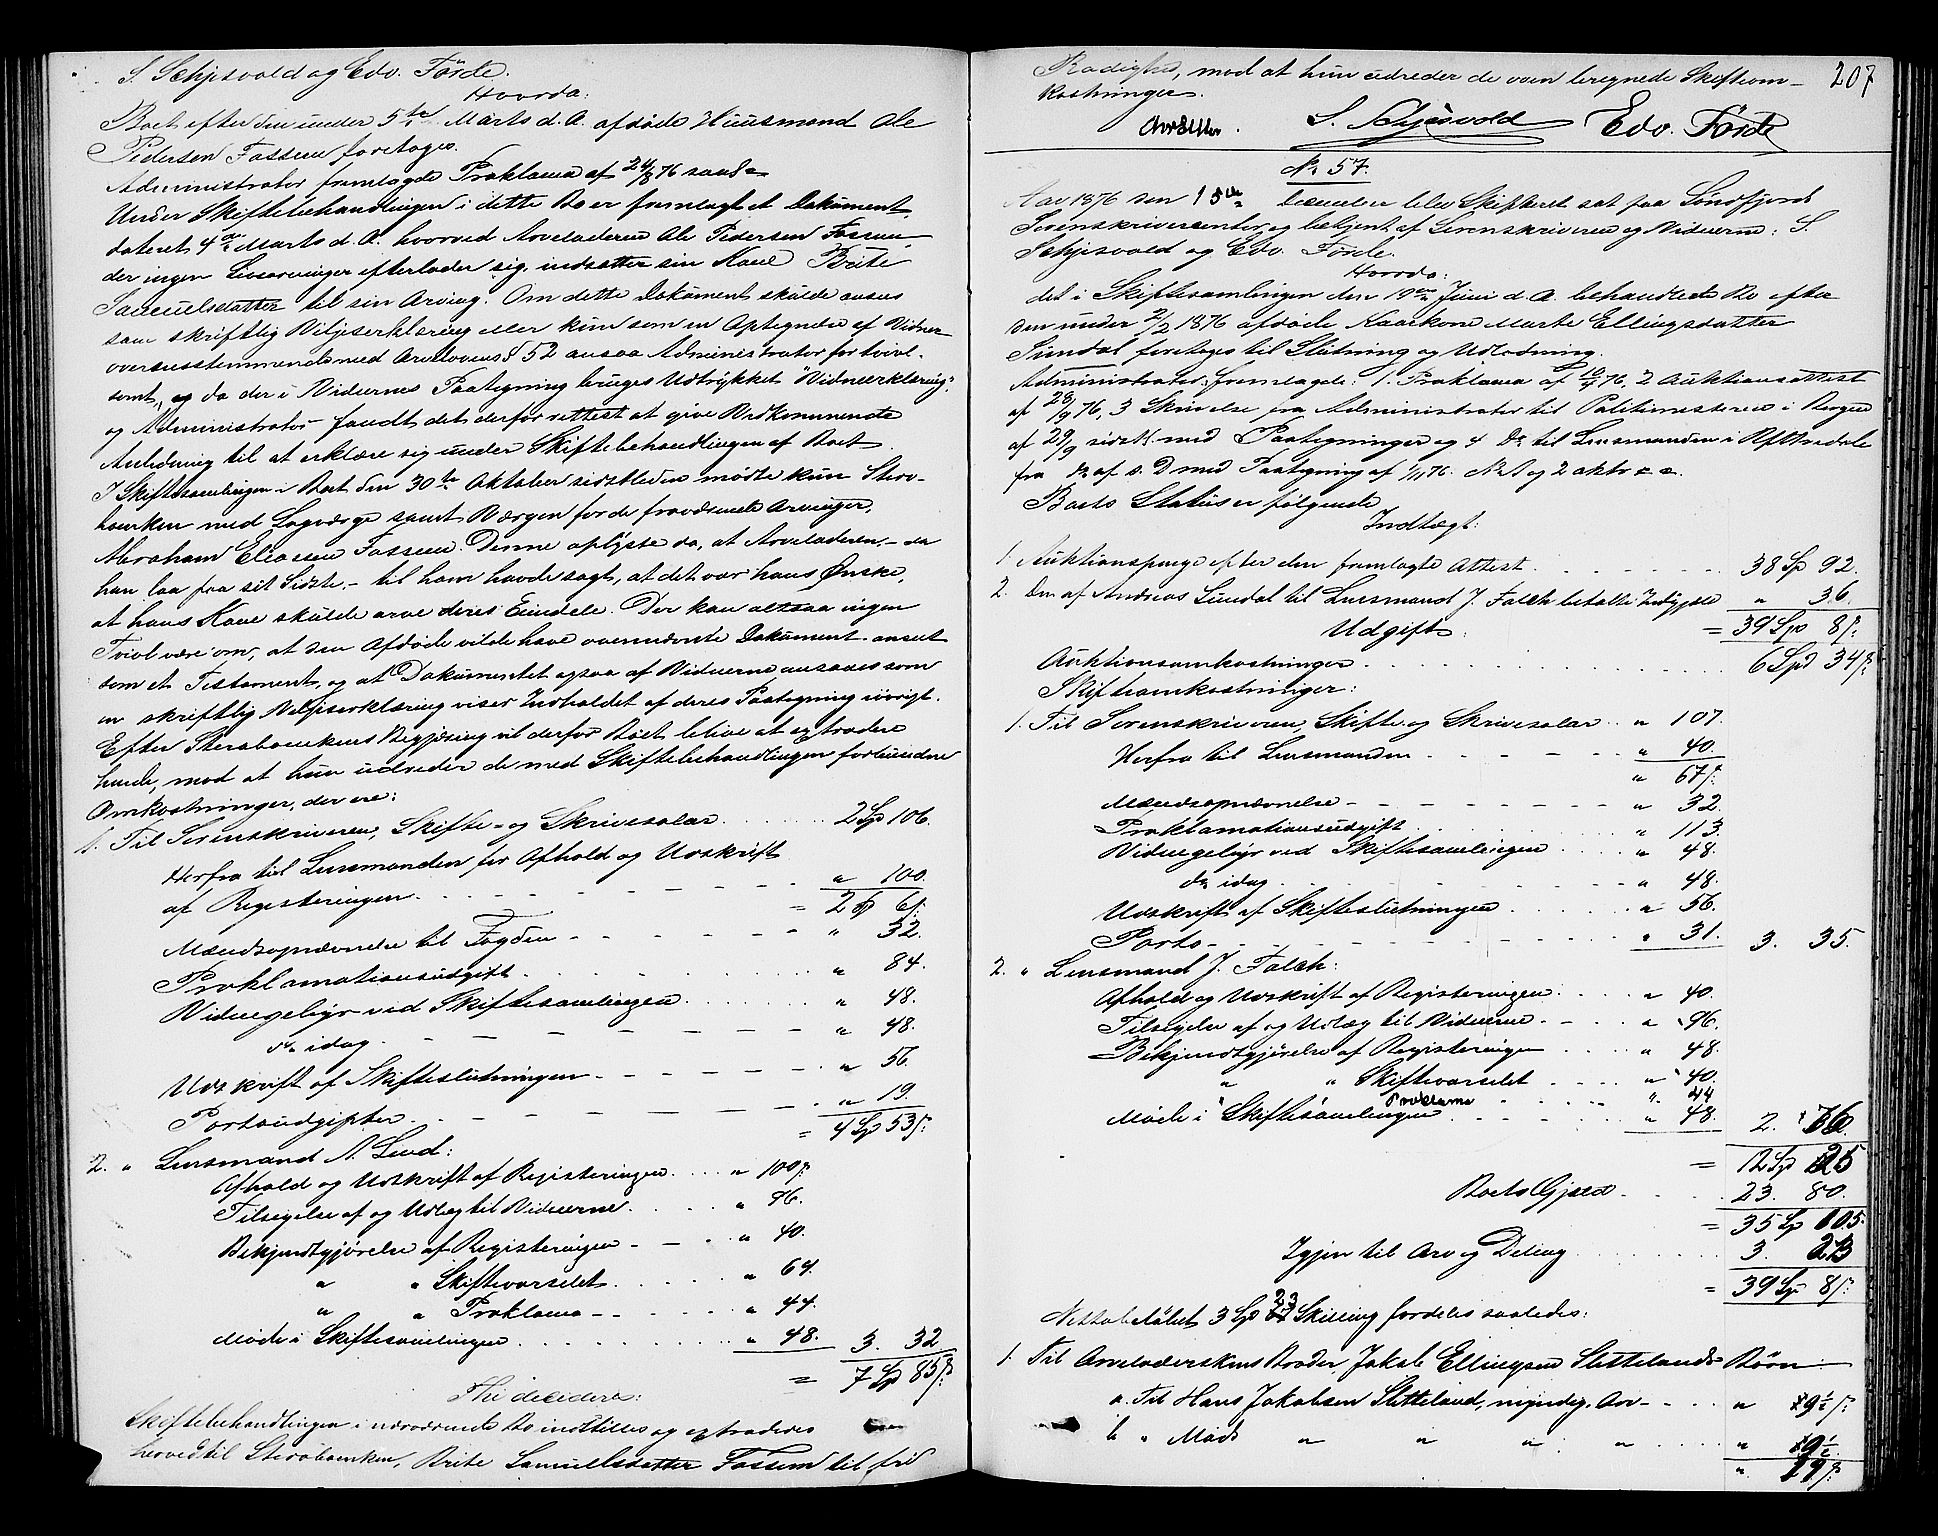 S. Schjesvold og Edv. Förde.
Hvorda:
Boet efter den under 5te Marts d. A. afdöde Huusmand Ole
Pedersen Fossum foretoges.
Administrator fremlagde Proklama af 24/8 76
Under Skiftebehandlingen i dette Bo er fremlagt et Dokument
dateret 4de Marts d. A. hvorved Arveladeren Ole Pedersen Fossum,
der ingen Livsarvinger efterlader sig, indsætter sin Kone Brite
Samuelsdatter til sin Arving. Om dette Dokument skulde ansees
som skriftlig Viljeserklæring eller kun som en Optegnelse af Vidner
overensstemmende med Arvelovens § 52 ansaa Administrator for tvivl-
somt, og da der i Vidnernes Paategning bruges Udtrykket "Vidneerklæring",
og Administrator fandt det derfor rettest at give Vedkommende
Anledning til at erklære sig under Skiftebehandlingen af Boet.
I Skiftesamlingen i Boet den 30te Oktober sidstleden mødte kun Sterv-
boenken med Laugværge samt Værgen for de fraværende Arvinger,
Abraham Eliassen Fossum. Denne oplyste da, at Arveladeren, – da
han laa paa sit Sidste, – til ham havde sagt, at det var hans Ønske,
at hans Kone skulde arve deres Eiendele. Der kan altsaa ingen
Tvivl være om, at den Afdöde vilde have ovennævnte Dokument anseet
som et Testament, og at Dokumentet ogsaa af Vidnerne ansaaes som
en skriftlig Viljeserklæring viser Indholdet af deres Paategning iövrigt.
Efter Stervboenkens Begjæring vil derfor Boet blive at extradere
hende, mod at hun udreder de med Skiftebehandlingen forbundne
Omkostninger, der ere:
1. Til Sorenskriveren, Skifte- og Skriversalar 2 Sp 106.
Herfra til Lensmanden for Afhold og Udskrift
af Registeringen " 100.
= 2 Sp 6 s.
Mændsopnævnelse til Fogden " 32.
Proklamationsudgift " 84.
Vidnegebyr ved Skiftesamlingen " 48.
do idag " 48.
Udskrift af Skifteslutningen " 56.
Portoudgifter " 19.
= 4 Sp 53 s.
2. " Lensmand N. Lind:
Afhold og Udskrift af Registeringen " 100 s.
Tilsigelse af og Udlæg til Vidnerne " 96.
Bekjendtgjörelse af Registeringen " 40.
" " Skiftevarselet " 64.
" " Proklama " 44.
Møde i Skiftesamlingen " 48. 3. 32
= 7 Sp 85 s.
Thi decideres:
Skiftebehandlingen i nærværende Bo indstilles og extraderes
herved til Stervboenken, Brite Samuelsdatter Fossum til fri
207
Raadighed, mod at hun udreder de oven beregnede Skifteom-
kostninger.
S. Schjesvold Edv. Förde
No 57.
Aar 1876 den 15de December blev Skifteret sat paa Söndfjords
Sorenskriverembede og betjent af Sorenskriveren og Vidnerne: S.
Schjesvold og Edv. Förde.
Hvorda:
det i Skiftesamlingen den 19de Juni d. A. behandlede Bo efter
den under 2/2 1876 afdöde Kaarkone Marte Ellingsdatter
Sundal foretoges til Slutning og Udlodning.
Administrator fremlagde: 1. Proklama af 10/7 76, 2 Auktionsattest
af 28/9 76, 3 Skrivelse fra Administrator til Politimesteren i Bergen
af 29/9 sidstl. med Paategninger og 4 do til Lensmanden i
fra do af s. D med Paategning af 1/11 76.
Boets Status er følgende
Indtægt:
1. Auktionspenge efter den fremlagte Attest 38 Sp 92.
2. Den af Andreas Sundal til Lensmand J. Falch betalte " 36.
= 39 Sp 8 s.
Udgift:
Auktionsomkostninger 6 Spd 34 s.
Skifteomkostninger:
1. Til Sorenskriveren, Skifte og Skriversalar " 107.
Herfra til Lensmanden " 40.
" 67 s.
Mændsopnævnelse " 32.
Proklamationsudgift " 113.
Vidnegebyr ved Skiftesamlingen " 48.
do idag " 48.
Udskrift af Skifteslutningen " 56.
Porto " 31. 3. 35.
2. " Lensmand J. Falch:
Afhold og Udskrift af Registeringen " 40.
Tilsigelse af og Udlæg til Vidnerne " 96.
Bekjendtgjörelse af Registeringen " 48.
" " Skiftevarselet " 40.
" " Proklama " 44
Møde i Skiftesamlingen " 48. 2. 76.
= 12 Sp 25
Boets Gjæld 23. 80.
= 35 Sp 105.
Igjen til Arv og Deling 3. 23
= 39 Sp 8 s.
Nettobeløbet 3 Sp 23 Skilling fordeles saaledes:
1. Til Arveladerskens Broder Jakob Ellingsen Slettelands Børn:
a. Til Hans Jakobsen Sletteland, myndig, Arv " 
b " Mads " " " "